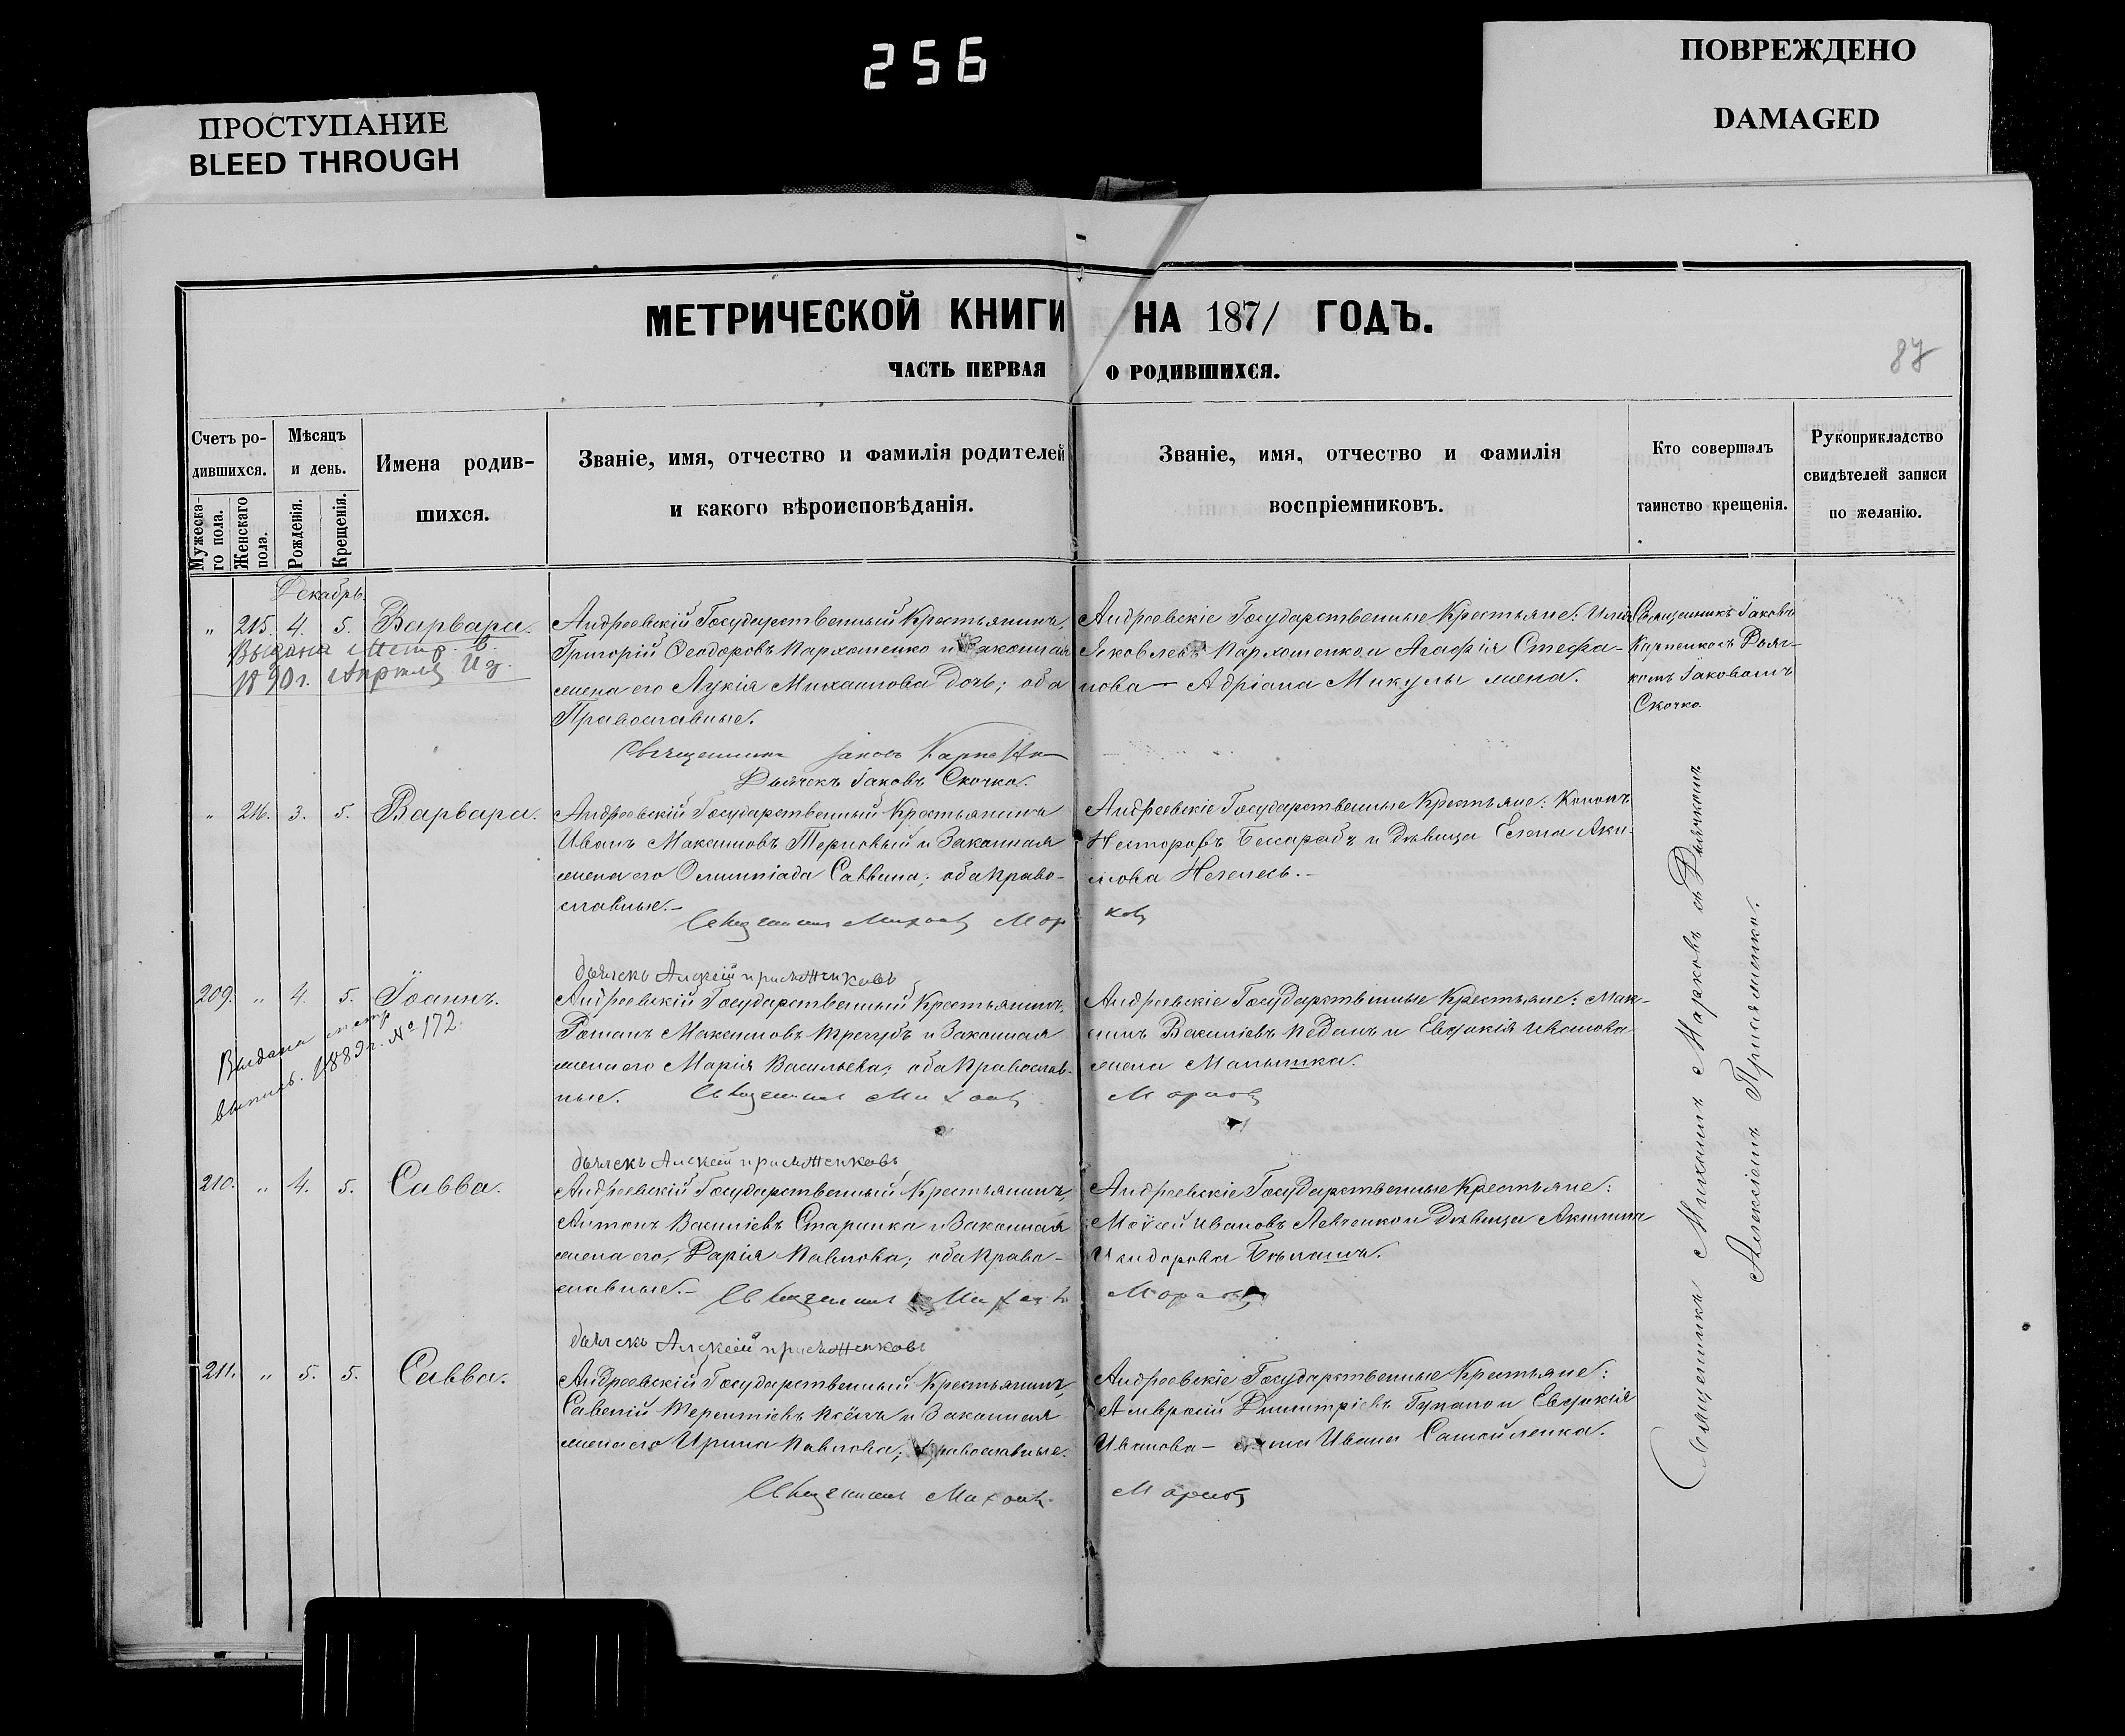 256
ПРОСТУПАНИЕ
BLEED THROUGH
ПОВРЕЖДЕНО
DAMAGED
МЕТРИЧЕСКОЙ КНИГИ НА 1871 ГОДЪ.
ЧАСТЬ ПЕРВАЯ О РОДИВШИХСЯ.
87
Счетъ ро-
дившихся.
Мужеска-
го пола.
Женскаго
пола.
Мѣсяцъ
и день.
Рожденія.
Крещенія.
Имена родив-
шихся.
Званіе, имя, отчество и фамилія родителей
и какого вѣроисповѣданія.
Званіе, имя, отчество и фамилія
воспріемниковъ.
Кто совершалъ
таинство крещенія.
Рукоприкладство
свидѣтелей записи
по желанію.
Декабрь
„ 215. 4. 5. Варвара.
Выдана Метр. в.
1890 г. Апрѣля
Андреевскій Государственный Крестьянинъ,
Григорій Ѳеодоровъ Пархоменко и Законная
жена его Лукія Михаилова дочь; оба
Православные.
Священникъ Іаковъ
Дьячекъ Іаковъ Скочко.
Андреевскіе Государственные Крестьяне: Илія
Яковлевъ Пархоменко и Агафія Стефа-
нова — Адріана Микулы жена.
Священникъ Іаковъ
Карпенко съ Дьяч-
комъ Іаковомъ
Скочко.
„ 216. 3. 5. Варвара.
Андреевскій Государственный Крестьянинъ
Иванъ Максимовъ Терновый и Законная
жена его Олимпіада Саввина; оба Право-
славные.—
Священникъ Михаилъ Марковъ
Андреевскіе Государственные Крестьяне: Кононъ
Несторовъ Бесарабъ и дѣвица Елена Аки-
мова
дьячекъ Алексій
209. „ 4. 5. Іоаннъ.
Выдана метр
выпись. 1889 г. № 172.
Андреевскій Государственный Крестьянинъ,
Романъ Максимовъ Трегубъ и Законная
жена его Марія Васильева; оба Православ-
ные. Священникъ Михаилъ Марковъ
Андреевскіе Государственные Крестьяне: Мак-
симъ Василіевъ Педанъ и Евдокія Иванова
жена Малышка.
дьячекъ Алексій
210. „ 4. 5. Савва.
Андреевскій Государственный Крестьянинъ,
Антонъ Василіевъ Старинка и Законная
жена его, Дарія Павлова; оба Право-
славные.— Священникъ Михаилъ Марковъ
Андреевскіе Государственные Крестьяне:
Моѵсей Ивановъ Левченко и дѣвица Акилина
Исидорова
дьячекъ Алексій
211. „ 5. 5. Савва.
Андреевскій Государственный Крестьянинъ,
Савелій Терентіевъ и Законная
жена его Ирина Павлова; Православные.
Священникъ Михаилъ Марковъ
Андреевскіе Государственные Крестьяне:
Амвросій Димитріевъ и Евдокія
Иванова — жена Ивана Самойленка.
Священникъ Михаилъ Марковъ съ Дьячкомъ
Алексіемъ